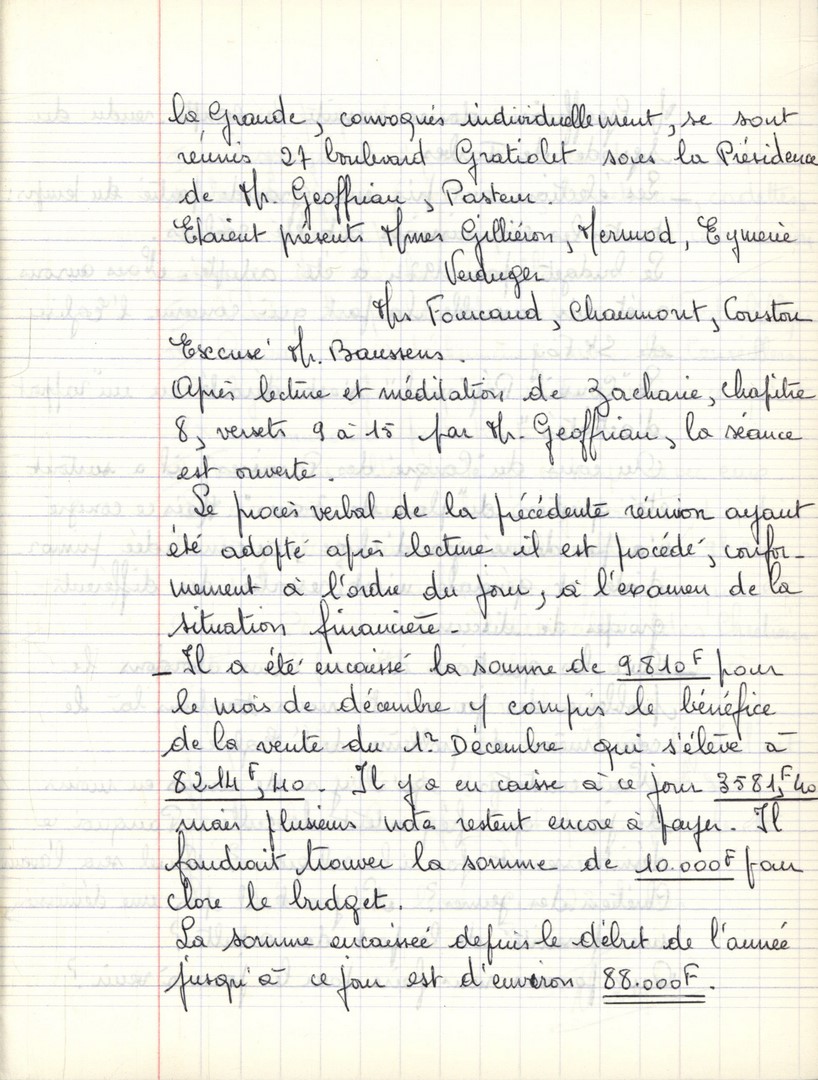 la Grande, convoqués individuellement, se sont
réunis 27 boulevard Gratiolet sous la Présidence
de Mr. Geoffriau, Pasteur
Etaient présents Mmes Gilliéron, Mermod, Eymerie
Verduger
Mrs Fourcaud, Chaumont, Couston
Excusé Mr. Baussens.
Après lecture et méditation de Zacharie, chapitre
8, versets 9 à 15 par Mr. Geoffriau, la séance
est ouverte.
Le procès verbal de la précédente réunion ayant
été adopté après lecture il est procédé, confor-
mément à l'ordre du jour, à l'examen de la
situation financière.
_ Il a été encaissé la somme de 9.810F pour
le mois de décembre y compris le bénéfice
de la vente du 1er Décembre qui s'élève à
8214F,40. Il y a en caisse à ce jour 3581,F40
mais plusieurs notes restent encore à payer. Il
faudrait trouver la somme de 10.000F pour
clore le budget.
La somme encaissée depuis le début de l'année
jusqu'à ce jour est d'environ 88.000F.